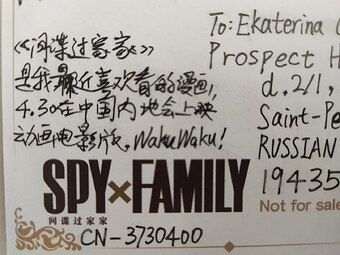 《间谍过家家》
是我最近喜欢看的漫画,
4.30在中国内地会上映
动画电影版, WakuWaku!
To: Ekaterina
Prospect
d.2/1,
Saint-Pe
RUSSIAN
19435
SPY×FAMILY
间谍过家家
Not for sale
CN-3730400